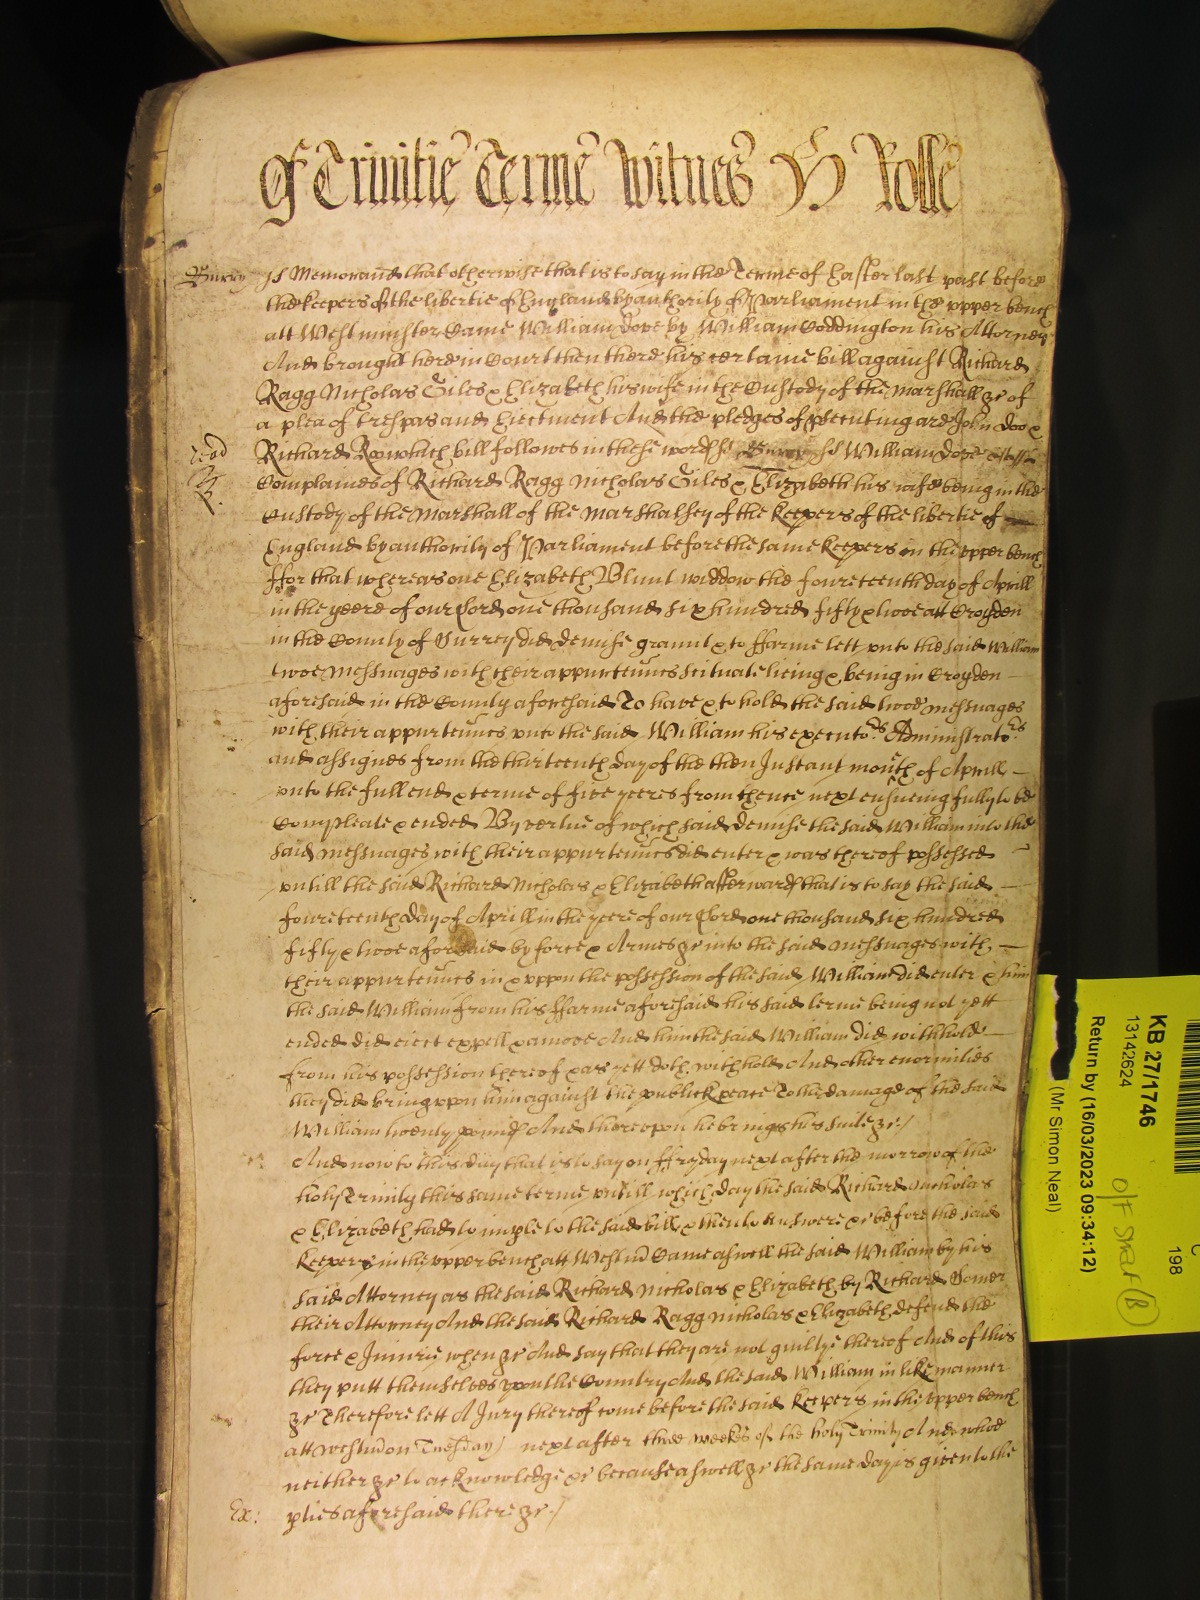 Of Trinitie Terme Witnes H Rolle
Surrey ss Memorand that otherwise that is to say in the Terme of Easter last past before
the keepers of the libertie of England by authority of Parliament in the upper bench
att Westminster Came William Dove by William Coddington his Attorney
And brought here in Court then there his certaine bill against Richard
Ragg Nicholas Giles & Elizabeth his wife in the Custody of the Marshall &c of
a plea of trespas and Ejectment And the pledges of psecuting are John Doo &
Richard Roo which bill followes in these words ss Surrey ss William Dove
Complaines of Richard Ragg Nicholas Giles & Elizabeth his wife being in the
Custody of the Marshall of the Marshalsey of the Keepers of the libertie of
England by authority of Parliament before the same Keepers in the upper bench
ffor that whereas one Elizabeth Blunt widdow the fourteenth day of Aprill
in the yeere of our Lord one thousand six hundred fifty & twoe att Croyden
in the County of Surrey did demise graunt & to ffarme lett unto the said William
twoe messuages with their appurtenncs scituate lieing & being in Croyden
aforesaid in the County aforesaid To have & to hold the said twoe messuages
with their appurtenncs unto the said William his executors Administrators
and assignes from the thirteenth day of the then Instant month of Aprill
unto the full end & terme of five yeeres from thence next ensueing fully to be
Compleate & ended By vertue of which said demise the said William into the
said messuages with their appurtenncs did enter & was thereof possessed
untill the said Richard Nicholas & Elizabeth afterwards that is to say the said
fourteenth day of Aprill in the yeere of our Lord one thousand six hundred
fifty & twoe aforesaid by force & Armes &c into the said messuages with
their appurtenncs in & uppon the possession of the said William did enter & him
the said William from his ffarme aforesaid his said terme being not yett
ended did eject expell & amove And him the said William did withhold
from his possession thereof & as yett doth withhold And other enormities
they did bring upon him against the publick peace To the damage of the said
William twenty pounds And thereupon he brings his suite &c /
And now to this day that is to say on ffryday next after the morrow of the
holy Trinity this same terme untill which day the said Richard Nicholas
& Elizabeth had to imple to the said bill & then to Answere &c before the said
Keepers in the upper bench att Westm Came aswell the said William by his
said Attorney as the said Richard Nicholas & Elizabeth by Richard Gomer
their Attorney And the said Richard Ragg Nicholas & Elizabeth defend the
force & Iniurie when &c And say that they are not guiltye thereof And of this
they putt themselves upon the Country And the said William in like manner
&c Therefore lett A Jury thereof come before the said Keepers in the upper bench
att Westm on Tuesday next after three weekes of the holy Trinity And whoe
neither &c to acknowledge &c because aswell &c the same day is given to the
Ex: pties aforesaid there &c /
KB 27/1746
13142624
Return by (16/03/2023 09:34:12)
(Mr Simon Neal)
C
198